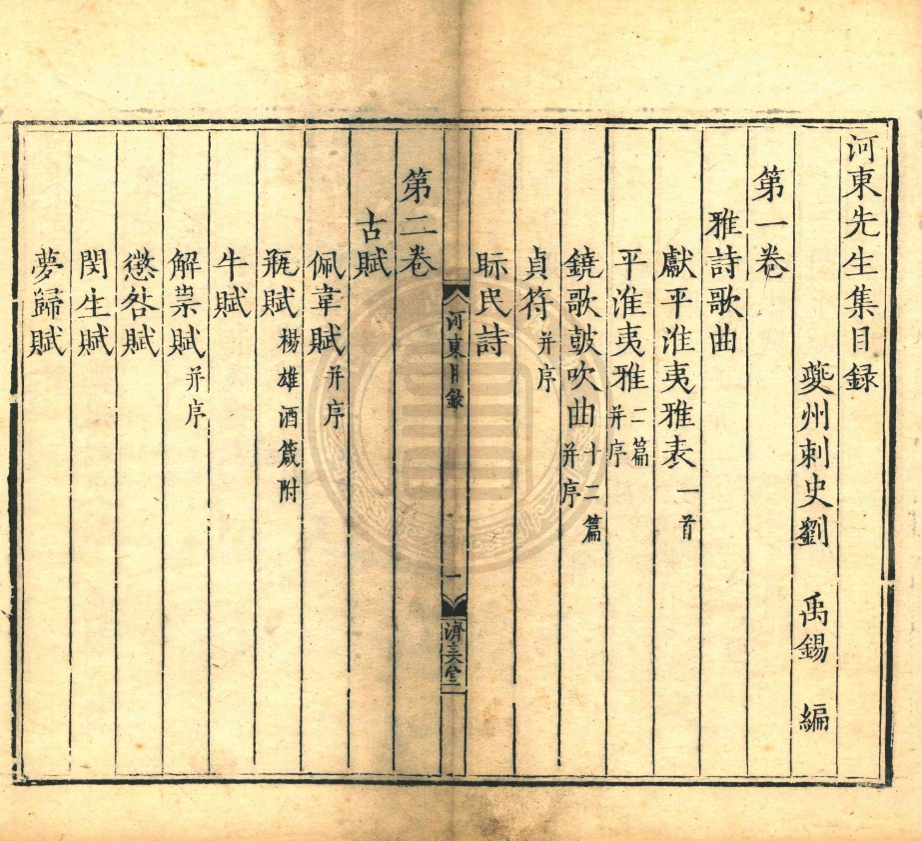 河東先生集目録
夔州刺史劉 禹錫 編
第一卷
雅詩歌曲
獻平淮夷雅表一首
平淮夷雅二篇并序
鐃歌鼓吹曲十二篇并序
貞符并序
眎民詩
河東目録
一
濟美堂
第二卷
古賦
佩韋賦并序
瓶賦楊雄酒箴附
牛賦
解祟賦并序
懲咎賦
閔生賦
夢歸賦